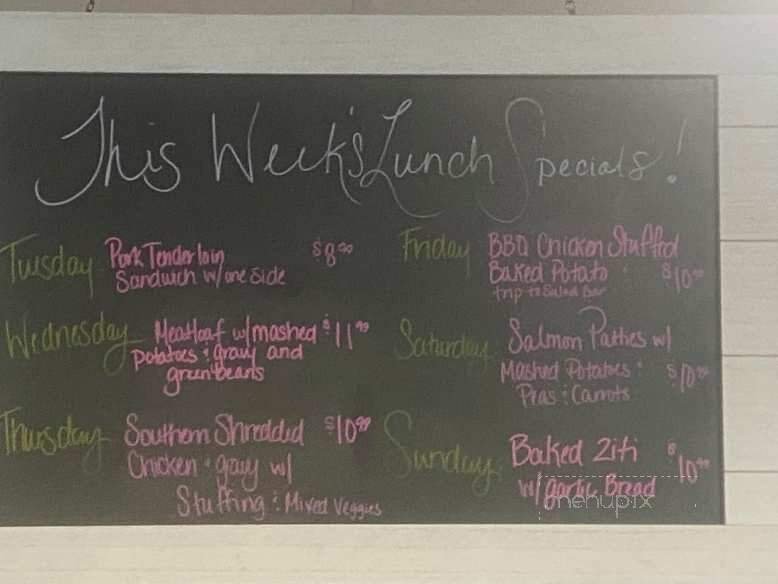 This Week's Lunch Specials!
Tuesday Pork Tenderloin $8.99
Sandwich w/one side
Wednesday Meatloaf w/mashed $11.99
potatoes & gravy and
green beans
Thursday Southern Shredded $10.99
Chicken & gravy w/
Stuffing & Mixed Veggies
Friday BBQ Chicken Stuffed
Baked Potato & $10.99
trip to Salad Bar
Saturday Salmon Patties w/
Mashed Potatoes & $10.99
Peas & Carrots
Sunday Baked Ziti $10.99
w/ garlic Bread
menupix